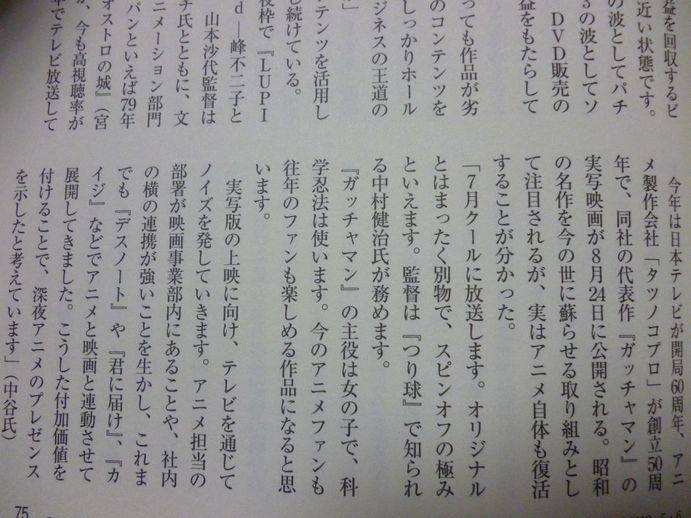 益を回収するビ
近い状態です。
の波としてパチ
3の波としてソ
DVD販売の
益をもたらして
っても作品が劣
のコンテンツを
しっかりホール
ジネスの王道の
」
ンテンツを活用し
し続けている。
役枠で『LUPI
d―峰不二子と
山本沙代監督は
チ氏とともに、文
ニメーション部門
パンといえば79年
オストロの城』(宮
が、今も高視聴率が
年でテレビ放送して
今年は日本テレビが開局60周年、アニ
メ製作会社「タツノコプロ」が創立50周
年で、同社の代表作『ガッチャマン』の
実写映画が8月24日に公開される。昭和
の名作を今の世に蘇らせる取り組みとし
て注目されるが、実はアニメ自体も復活
することが分かった。
「7月クールに放送します。オリジナル
とはまったく別物で、スピンオフの極み
といえます。監督は『つり球』で知られ
る中村健治氏が務めます。
『ガッチャマン』の主役は女の子で、科
学忍法は使います。今のアニメファンも
往年のファンも楽しめる作品になると思
います。
実写版の上映に向け、テレビを通じて
ノイズを発していきます。アニメ担当の
部署が映画事業部内にあることや、社内
の横の連携が強いことを生かし、これま
でも『デスノート』や『君に届け』、『カ
イジ』などでアニメと映画と連動させて
展開してきました。こうした付加価値を
付けることで、深夜アニメのプレゼンス
を示したと考えています」(中谷氏)
75